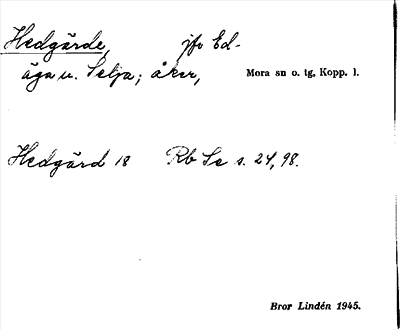 Hedgärde, jfr Ed-
äga u. Selja; åker, Mora sn o. tg, Kopp. l.
Hedgärd 18 Rb Se s. 24, 98.
Bror Lindén 1945.